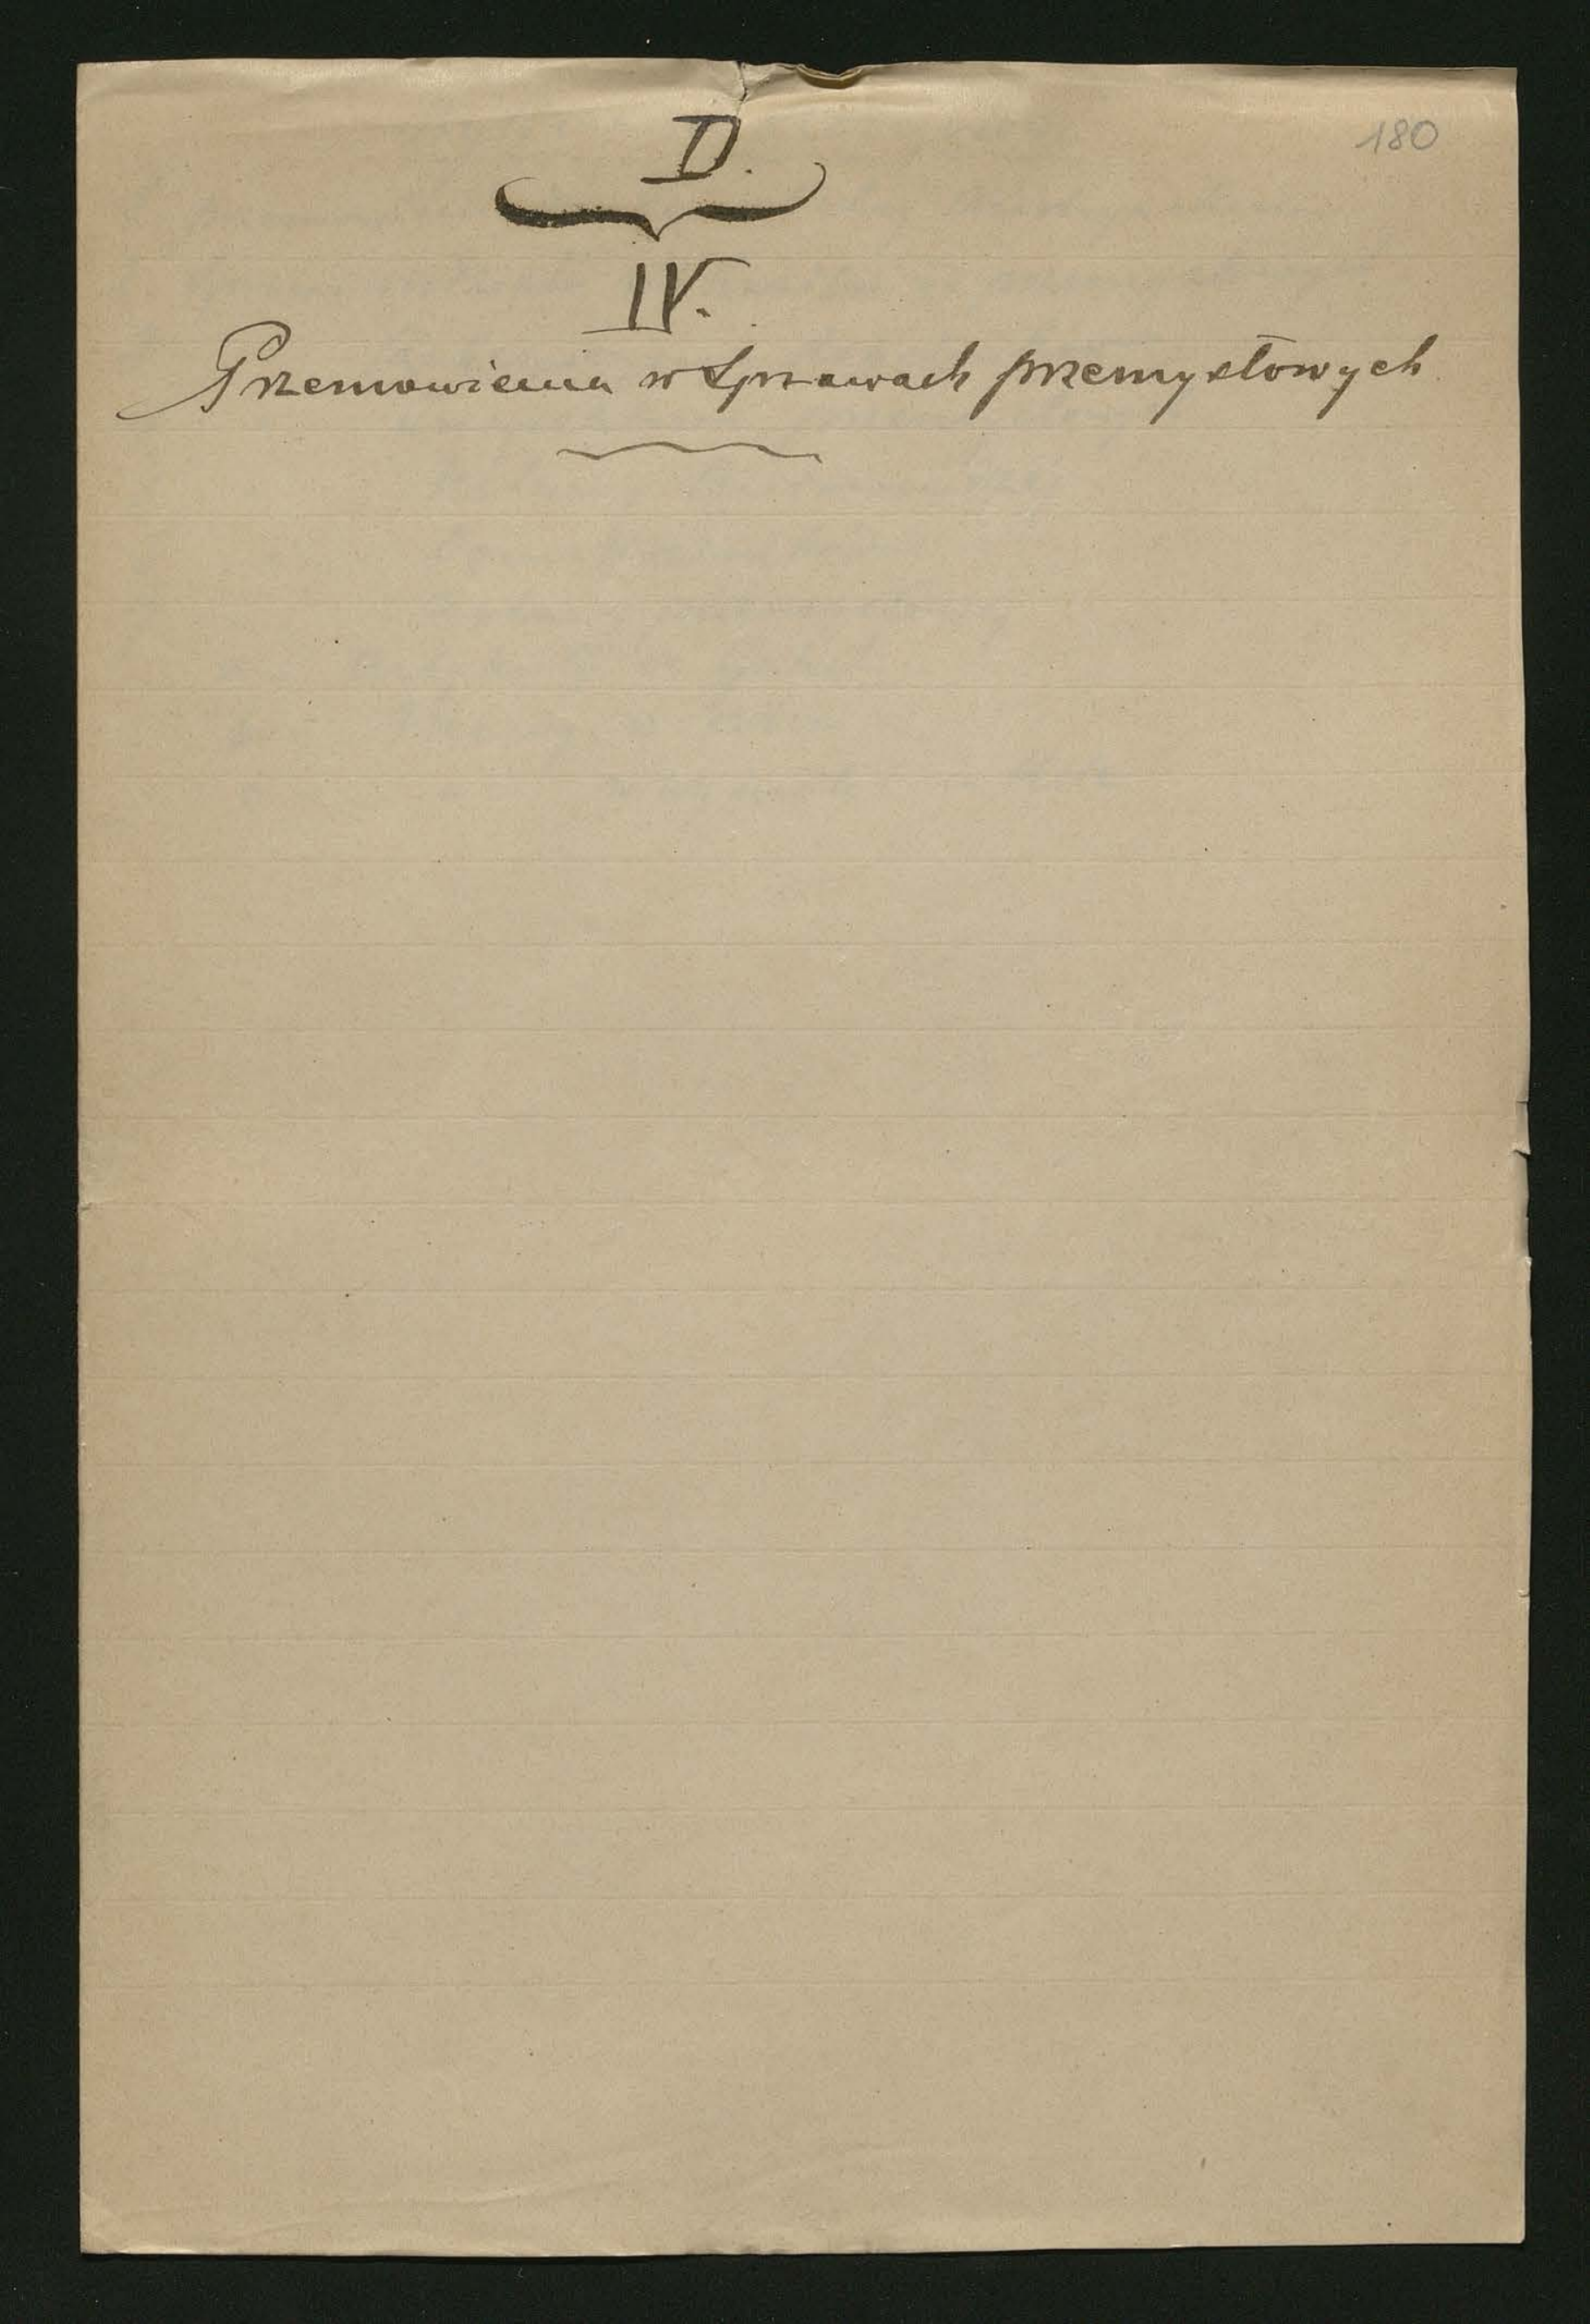 180
D.
IV.
Przemowienia w Sprawach przemysłowych